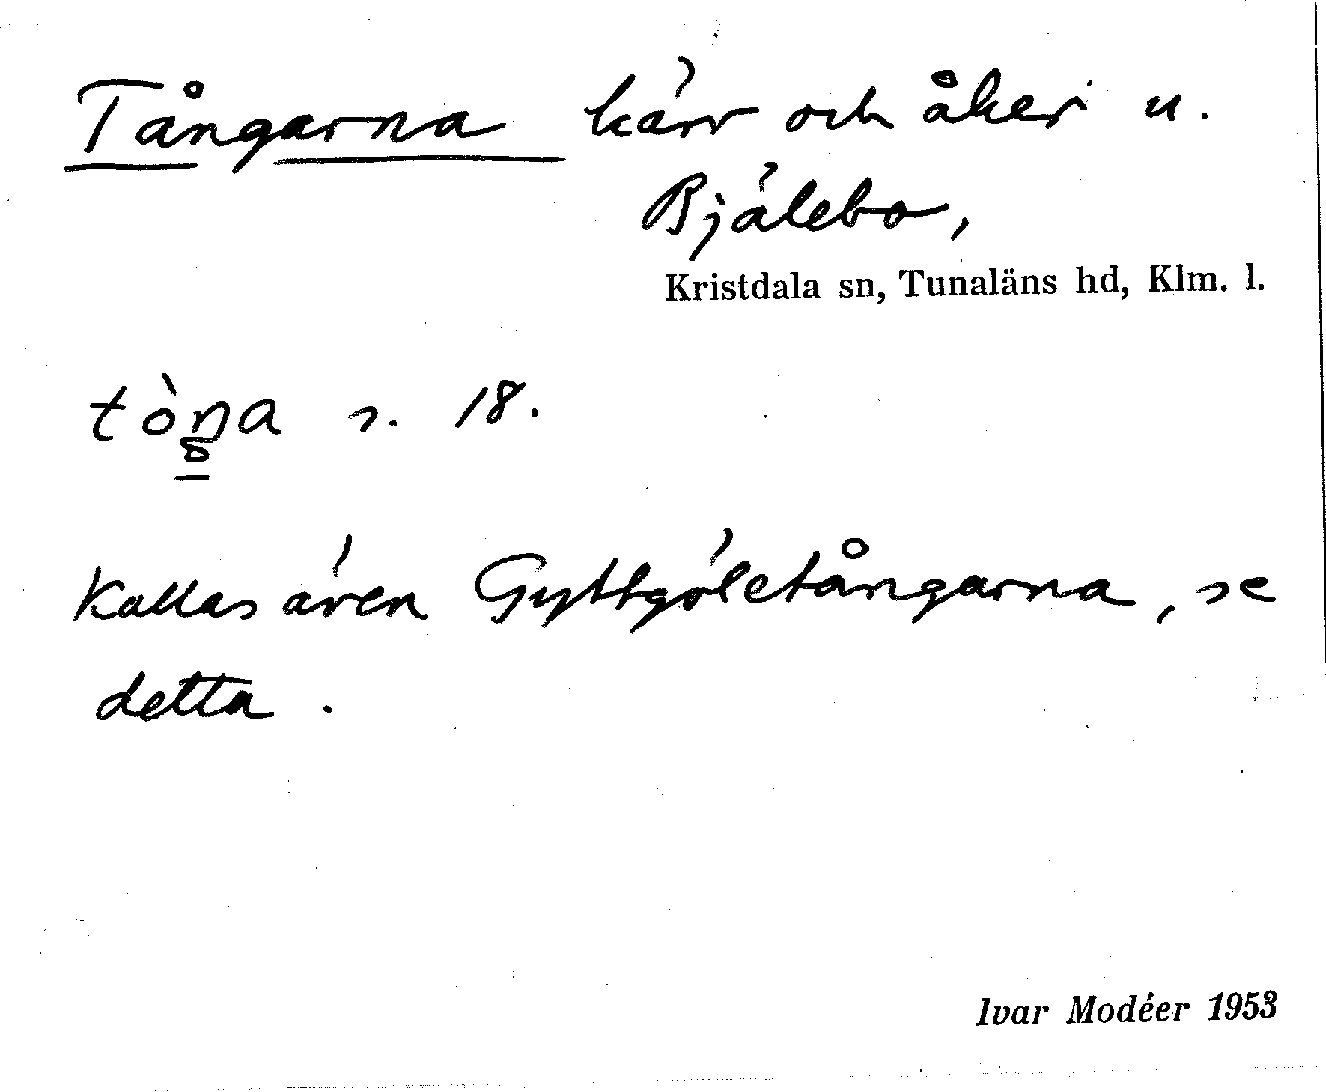 Tångarna kärr och åker u.
Bjälebo,
Kristdala sn, Tunaläns hd, Klm. l.
tòŋa s. 18.
Kallas även Gyttgöletångarna, se
detta.
Ivar Modéer 1953